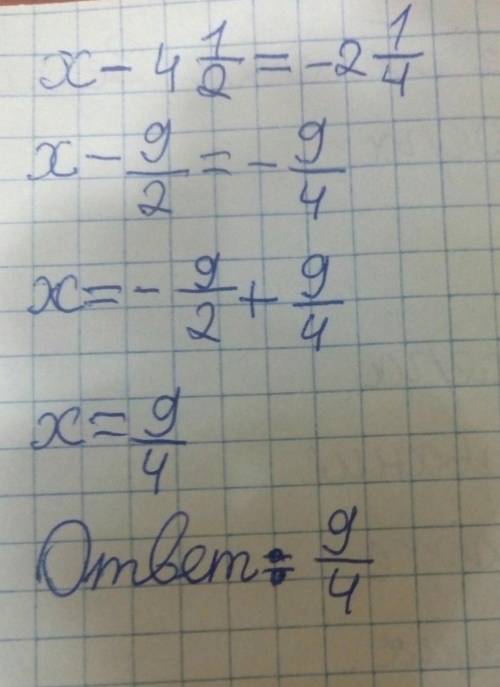 x - 4 1/2 = -2 1/4
x - 9/2 = - 9/4
x = - 9/2 + 9/4
x = 9/4
Ответ: 9/4